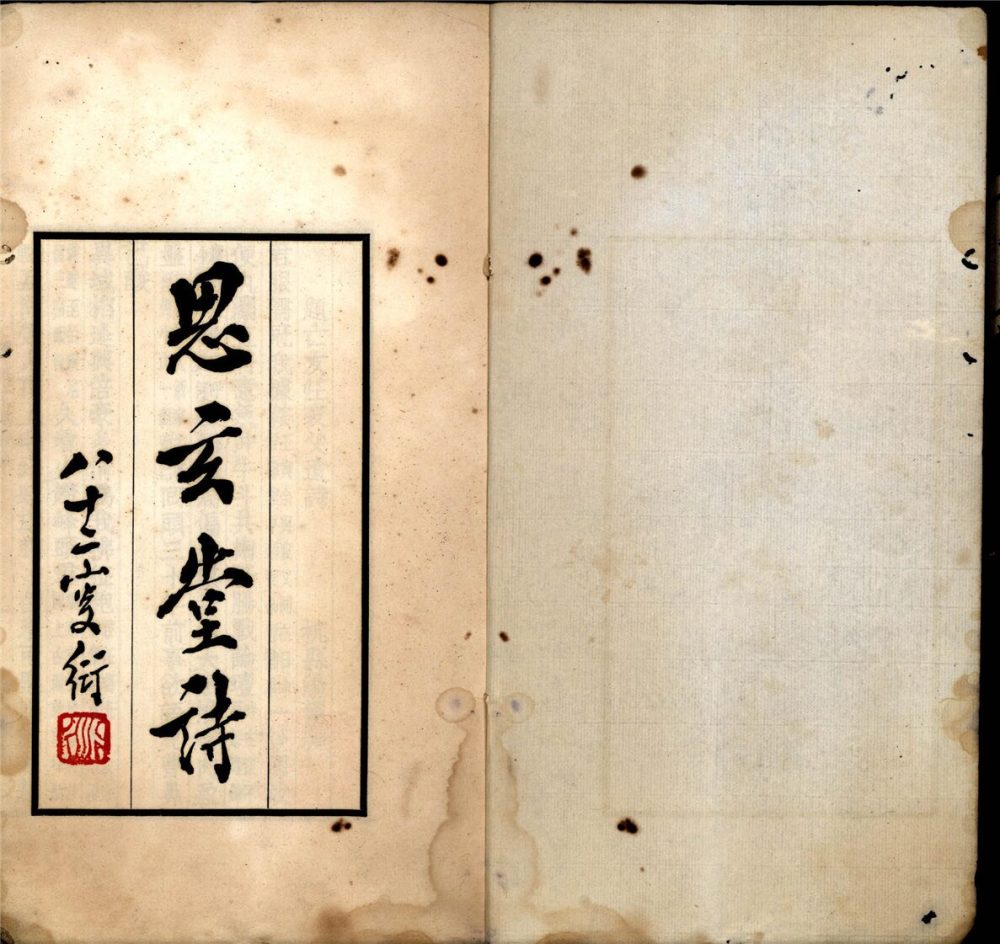 思玄堂詩
八十二叟衍